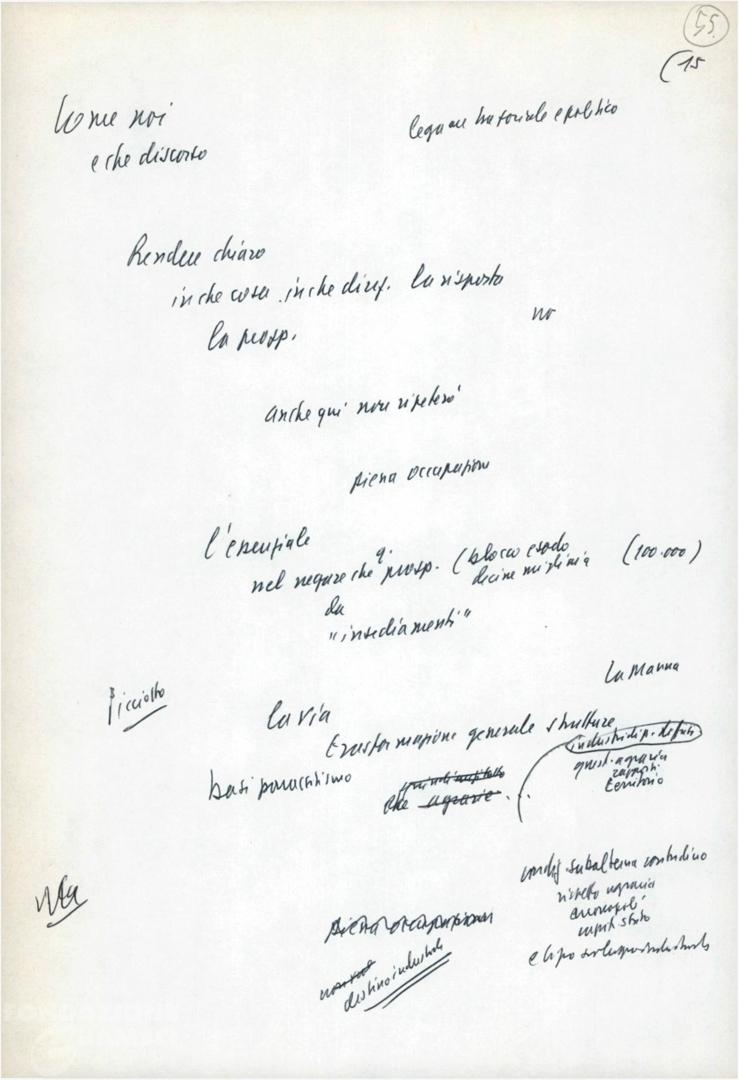 55.
(15
Come noi
e che discorso
legame territoriale e politico
Rendere chiaro
in che cosa in che direz. la risposta
no
la prosp.
anche qui non ripeterò
piena occupazione
l'essenziale
nel negare che q. prosp. (blocco esodo
decine migliaia
(100.000)
da
"insediamenti"
La Manna
Picciotto
la via
trasformazione generale strutture
quest. agraria
rapporti
territorio
basi parassitismo
che agrarie
condiz. subalterna contadino
rispetto agraria
monopoli
stato
e tipo sviluppo industriale
piena occupazione
destino industriale